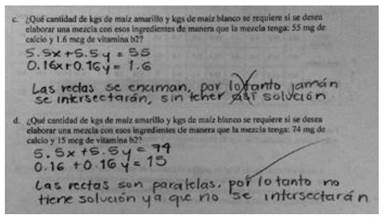 c. ¿Qué cantidad de kgs de maíz amarillo y kgs de maíz blanco se requiere si se desea
elaborar una mezcla con esos ingredientes de manera que la mezcla tenga: 55 mg de
calcio y 1.6 mcg de vitamina b2?
5.5x+5.5y=55
0.16x+0.16y=1.6
Las rectas se enciman, por lo tanto jamás
se intersectarán, sin tener así solución
d. ¿Qué cantidad de kgs de maíz amarillo y kgs de maíz blanco se requiere si se desea
elaborar una mezcla con esos ingredientes de manera que la mezcla tenga: 74 mg de
calcio y 15 mcg de vitamina b2?
5.5x+5.5y=74
0.16+0.16y=15
Las rectas son paralelas, por lo tanto no
tiene solución ya que no se intersectarán